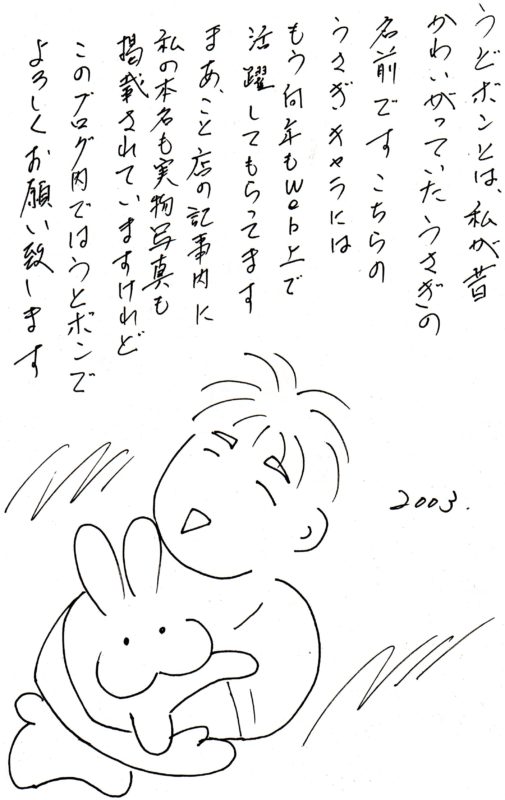 うどボンとは、私が昔
かわいがっていたうさぎの
名前です こちらの
うさぎキャラには
もう何年もWeb上で
活躍してもらってます
まあ、こと店の記事内に
私の本名も実物写真も
掲載されていますけれど
このブログ内ではうどボンで
よろしくお願い致します
2003.